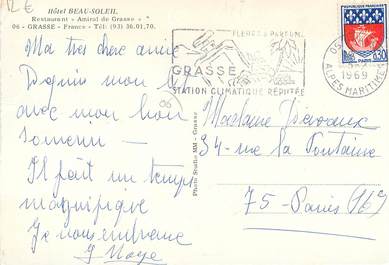 12 €
Hôtel BEAU-SOLEIL
Restaurant « Amiral de Grasse »
06 - GRASSE - France - Tél: (93) 36.01.70.
Ma très chère amie
Depuis mon
avec mon bon
souvenir —
Il fait un temps
magnifique
Je vous embrasse
J Noye
06
Photo Studio MM - Grasse
FLEURS & PARFUMS
GRASSE
STATION CLIMATIQUE RÉPUTÉE
1969
ALPES MARITIMES
REPUBLIQUE FRANCAISE
0,30
PARIS
Madame
34 - rue La Fontaine
75 - Paris (16)